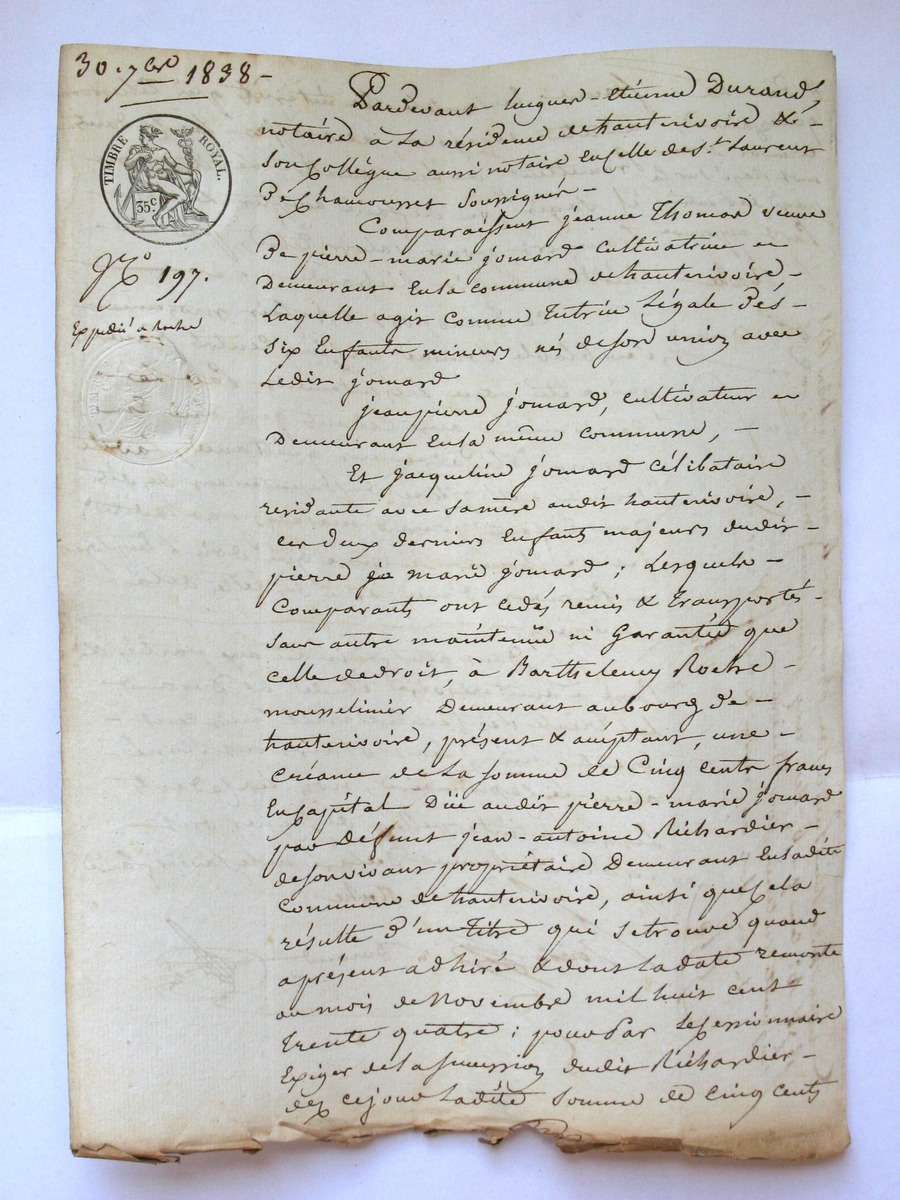 30. 7bre 1838 -
TIMBRE ROYAL.
35c
A
No 197.
Expédié a Roche
Pardevant hugues-étienne Durand,
notaire à la résidence de hauterivoire &
son Collègue aussi notaire en celle de St. Laurent
De Chamousset soussignés -
Comparaissent jeanne Thomas veuve
De pierre-marie jomard cultivatrice en
Demeurant en la commune de hauterivoire -
Laquelle agit comme Tutrice Légale Dés -
Six Enfants mineurs nés de son union avec
Ledit jomard
jean pierre jomard, cultivateur en
Demeurant en la même commune, -
Et jacqueline jomard célibataire
residante avec sa mère audit hauterivoire, -
ces deux derniers Enfants majeurs dudit -
pierre marie jomard ; Lesquels -
Comparants ont cédés remis & Transportés -
sans autre maintenüe ni Garantie que
celle de droit, à Barthelemy Roche -
mousselinier Demeurant au bourg de -
hauterivoire, présent & acéptant, une -
créance de la somme de Cinq cents francs
En capital Düe audit pierre-marie jomard
par Défunt jean-antoine Richardier -
de son vivant propriétaire Demeurant En ladite
commune de hauterivoire, ainsi que cela
résulte d'un Titre qui se trouve quand
a présent adhiré & dont la date remonte
au mois de Novembre mil huit cent
trente quatre ; pour Par Le cessionnaire
Exiger de la succession dudit Richardier -
dez ce jour Ladite somme de Cinq cents